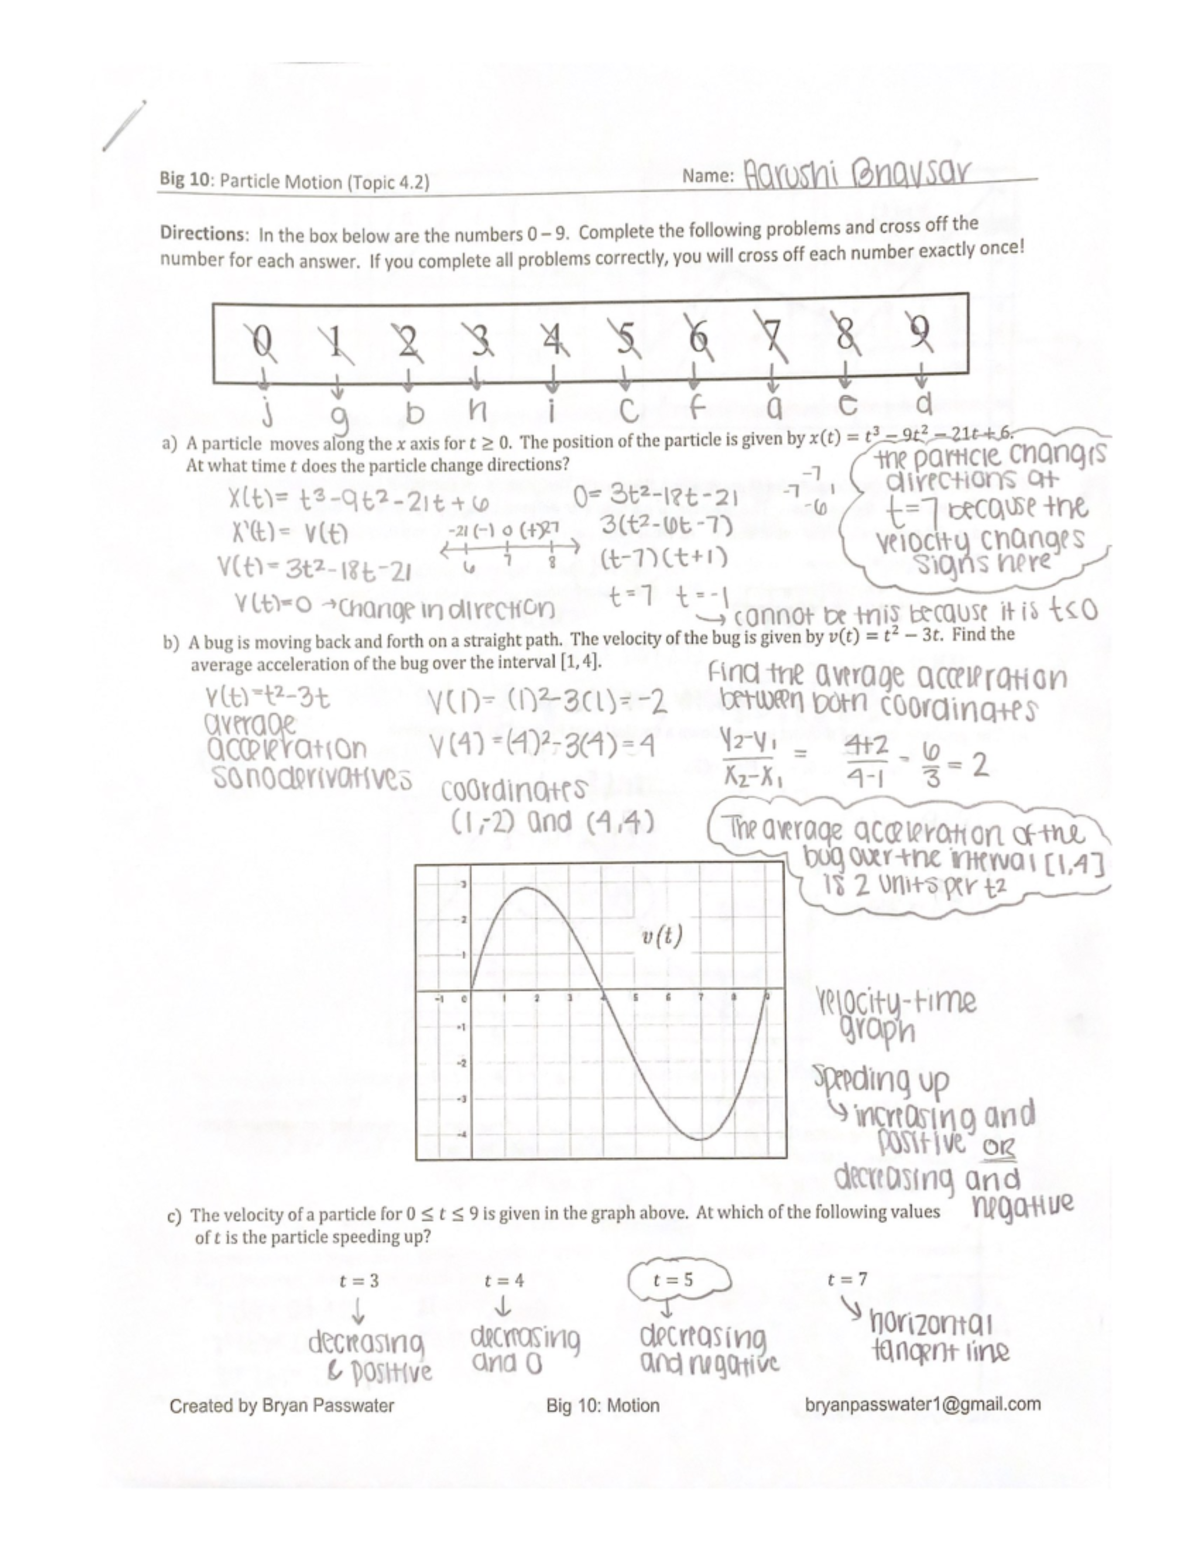 Big 10: Particle Motion (Topic 4.2) Name: Aarushi Bhavsar
Directions: In the box below are the numbers 0 – 9. Complete the following problems and cross off the
number for each answer. If you complete all problems correctly, you will cross off each number exactly once!
0 1 2 3 4 5 6 7 8 9
j g b h i c f a e d
a) A particle moves along the x axis for t ≥ 0. The position of the particle is given by x(t) = t³ – 9t² – 21t + 6.
At what time t does the particle change directions?
x(t) = t³-9t²-21t+6
x'(t) = v(t)
v(t) = 3t²-18t-21
v(t)=0 →change in direction
-21 (-) 0 (+) 27
6 7 8
0= 3t²-18t-21
3(t²-6t-7)
(t-7)(t+1)
t=7 t=-1
→ cannot be this because it is t≤0
-7
-7 1
-6
the particle changes
directions at
t=7 because the
velocity changes
signs here
b) A bug is moving back and forth on a straight path. The velocity of the bug is given by v(t) = t² – 3t. Find the
average acceleration of the bug over the interval [1, 4].
v(t)=t²-3t
average
acceleration
so no derivatives
v(1)= (1)²-3(1)=-2
v(4)=(4)²-3(4)=4
coordinates
(1,-2) and (4,4)
Find the average acceleration
between both coordinates
y₂-y₁ / x₂-x₁ = 4+2 / 4-1 = 6/3 = 2
The average acceleration of the
bug over the interval [1,4]
is 2 units per t²
3
2
1
-1 0 1 2 3 5 6 7 8 9
-1
-2
-3
-4
v(t)
velocity-time
graph
speeding up
↳ increasing and
positive OR
decreasing and
negative
c) The velocity of a particle for 0 ≤ t ≤ 9 is given in the graph above. At which of the following values
of t is the particle speeding up?
t = 3 t = 4 t = 5 t = 7
decreasing
& positive
decreasing
and 0
decreasing
and negative
horizontal
tangent line
Created by Bryan Passwater Big 10: Motion bryanpasswater1@gmail.com